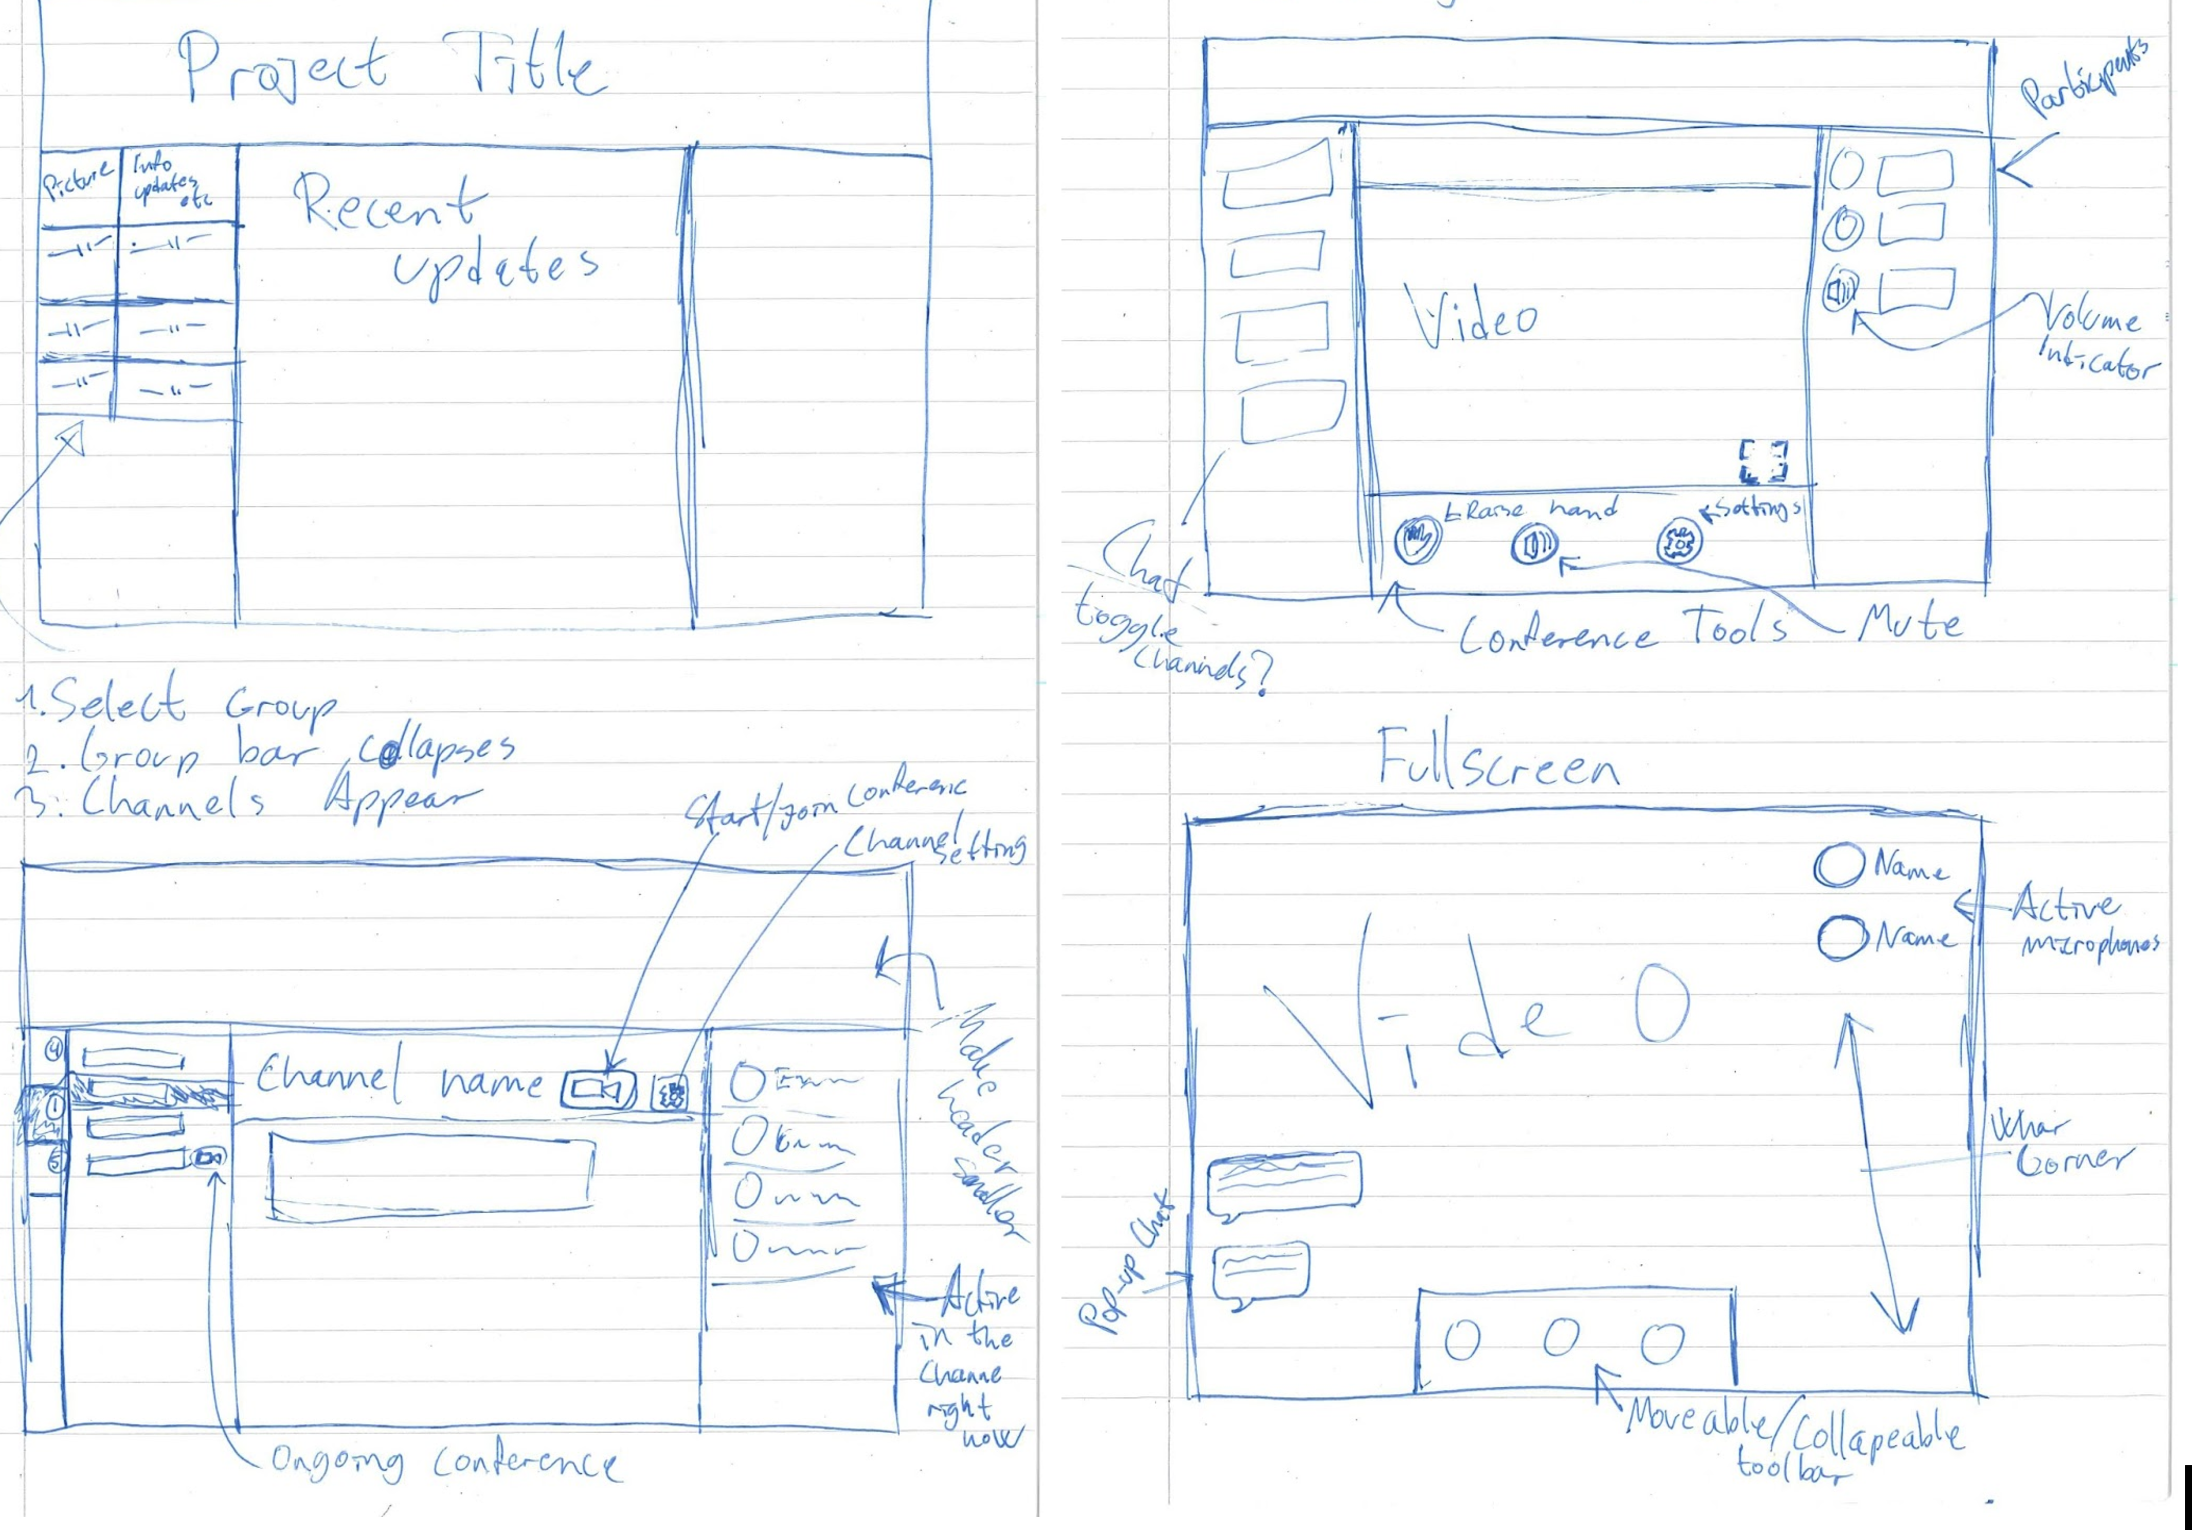 Project Title
Picture
Info
updates
etc
Recent
updates
1. Select Group
2. Group bar collapses
3. Channels Appear
Start/join Conferenc
Channel
Setting
4
1
5
Channel name
Make
header
smaller
Active
in the
Channe
right
now
Ongoing Conference
Participants
Video
Volume
Inticator
Raise hand
Settings
Chat
toggle
Channels?
Conference Tools
Mute
Fullscreen
Name
Name
Active
microphones
Video
Corner
Pop-up Chat
Moveable/Collapeable
toolbar